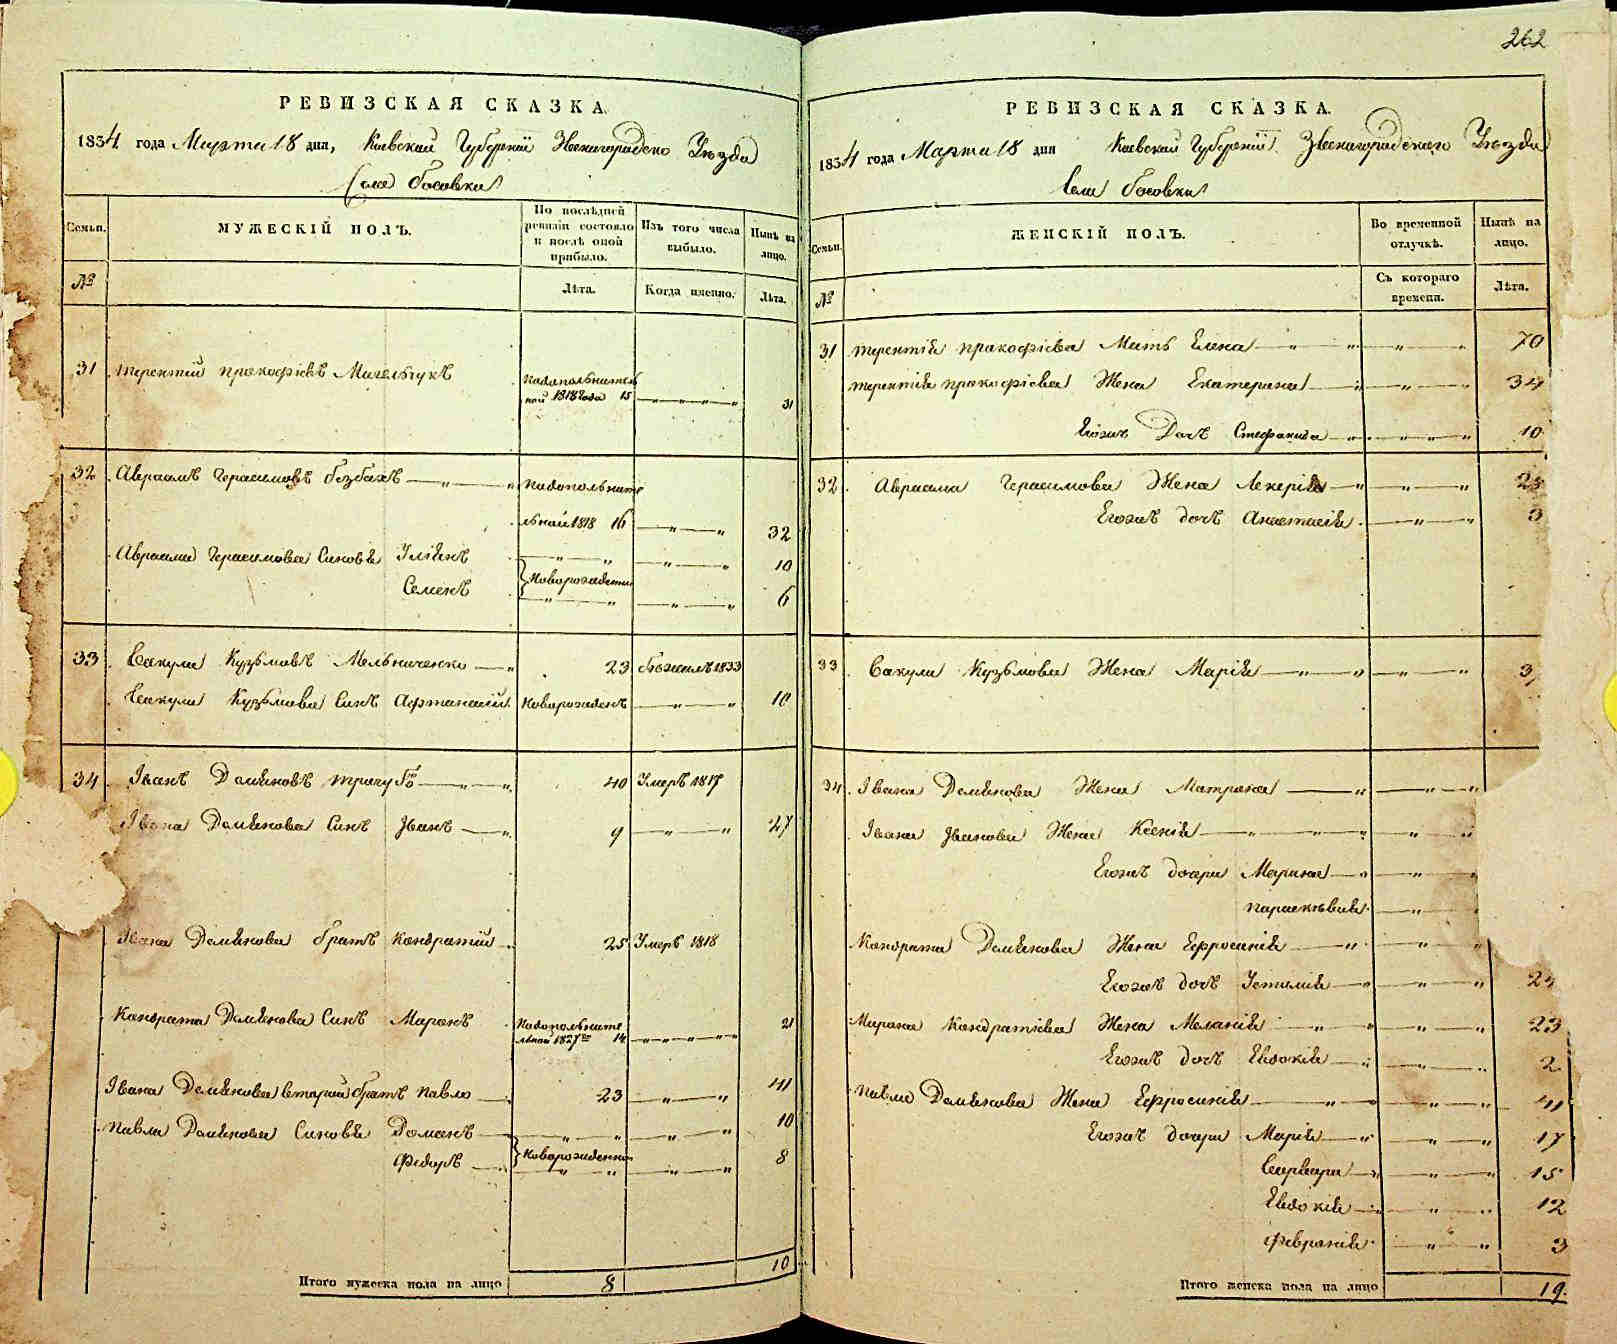 262
РЕВИЗСКАЯ СКАЗКА.
1834 года Марта 18 дня, Киевской Губернии Звенигородско Уезда
Села Босовки
Семьи.
МУЖЕСКІЙ ПОЛЪ.
По послѣдней ревизіи состояло и послѣ оной прибыло.
Изъ того числа выбыло.
Нынѣ на лицо.
№
Лѣта.
Когда именно.
Лѣта.
31 Терентій Прокофіевъ Мигельчукъ
надополнитель
ной 1818 года 15 31
32 Авраамъ Герасимовъ Безбахъ надополните
льной 1818 16 32
Авраама Герасимова Синовя Улянъ 10
Новорожденни
Семенъ 6
33 Вакула Кузьмовъ Мельниченко 23 Бежалъ 1833
Вакули Кузьмова Синъ Афтанасій Новорожденъ 10
34 Іванъ Домяновъ 40 Умеръ 1817
Івана Домянова Синъ Іванъ 9 27
Івана Домянова братъ Кондратій 25 Умеръ 1818
Кондрата Домянова Синъ Миронъ надополните
льной 1827го 14 21
Івана Домянова вторий братъ Павло 23 41
Павла Домянова Синовя Романъ 10
Новорожденни
Федоръ 8
Итого мужеска пола на лицо 8 10
РЕВИЗСКАЯ СКАЗКА.
1834 года Марта 18 дня Киевской Губерніи Звенигородского Уезда
Села Босовки
Семьи.
ЖЕНСКІЙ ПОЛЪ.
Во временной отлучкѣ.
Нынѣ на лицо.
№
Съ котораго времени.
Лѣта.
31 Терентія Прокофіева Мать Елена 70
Терентія Прокофіева Жена Екатерина 34
Егожъ Дочъ Стефанида 10
32 Авраама Герасимова Жена Лекерія
Егожъ дочъ Анастасія 3
33 Вакули Кузьмова Жена Марія
34 Івана Домянова Жена Матрона
Івана Іванова Жена Ксенія
Егожъ дочери Марина
Параскѣвія
Кондрата Домянова Жена Ефросинія
Егожъ дочъ Устимія
Мирона Кондратіева Жена Меланія 23
Егожъ дочъ Евдокія 2
Павла Домянова Жена Ефросинія 41
Егожъ дочери Марія 17
Варвара 15
Евдокія 12
Февронія 3
Итого женска пола на лицо 19.